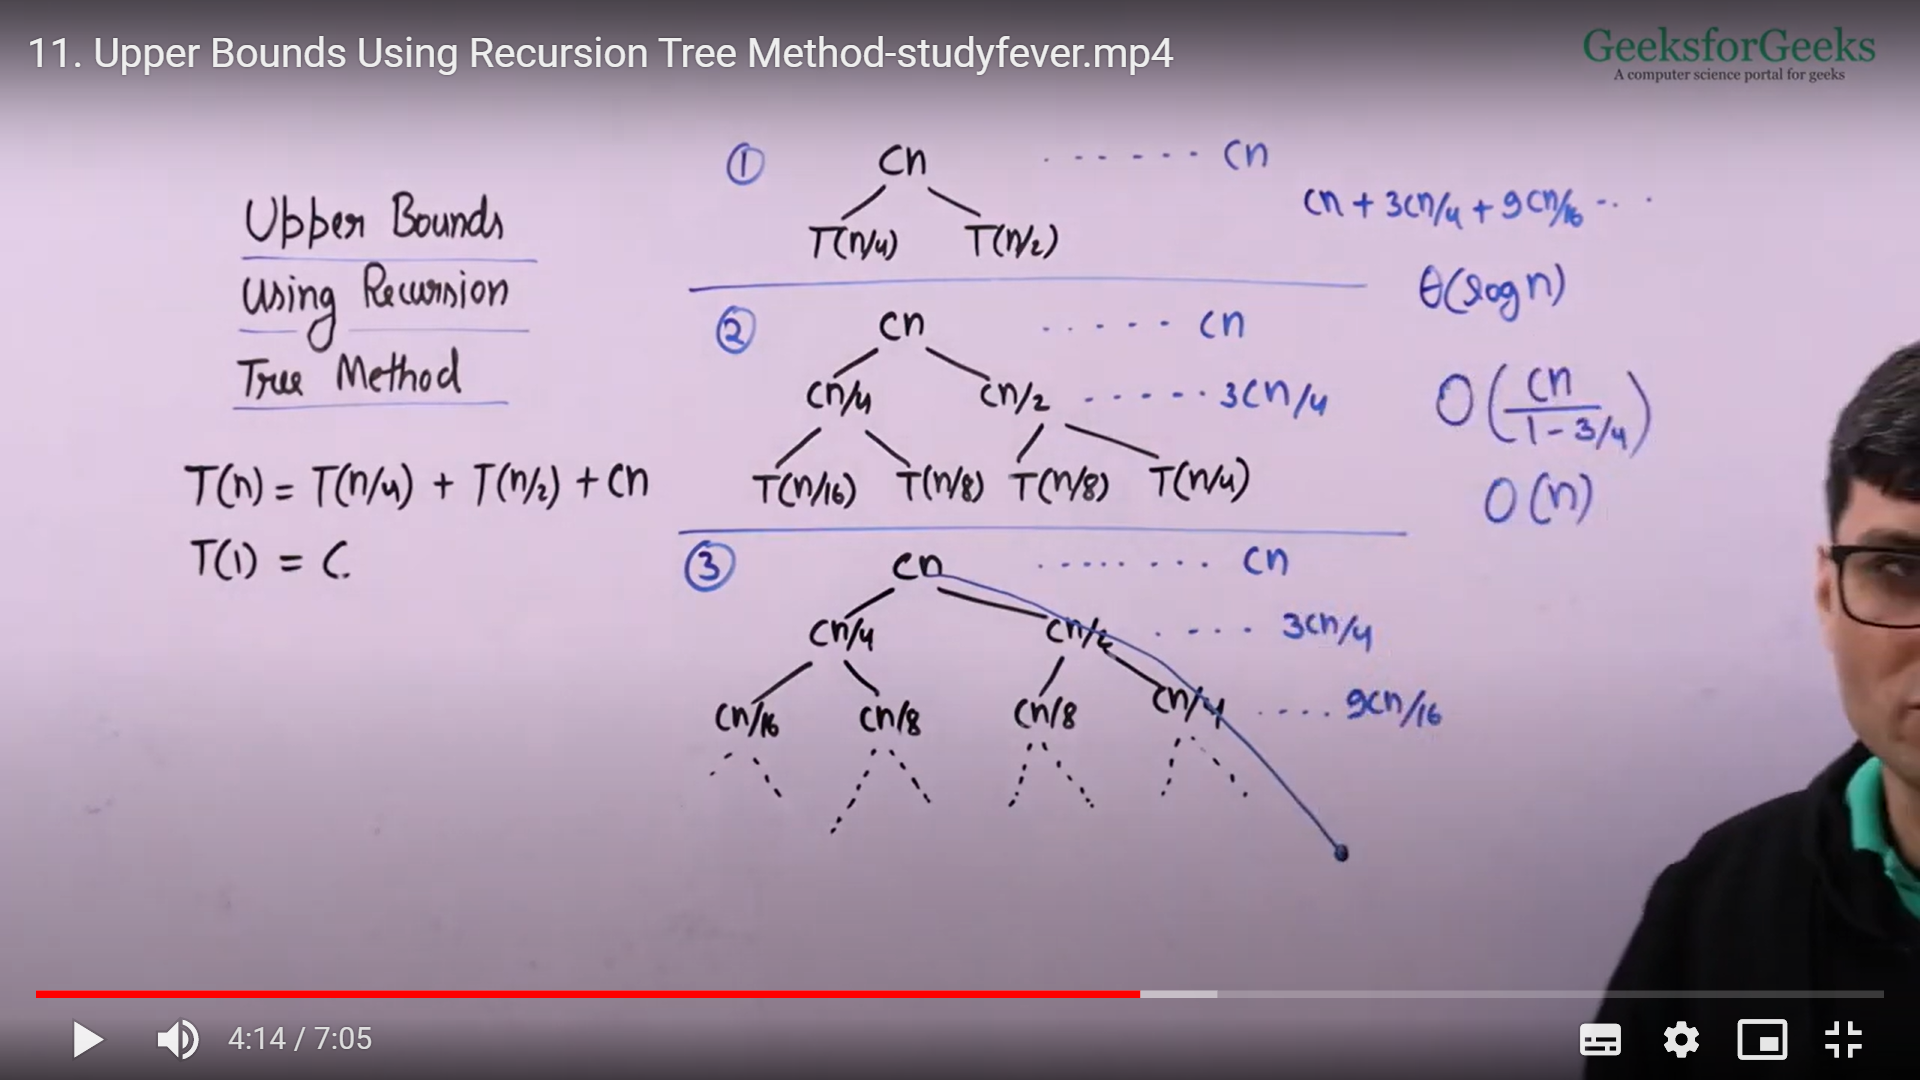 11. Upper Bounds Using Recursion Tree Method-studyfever.mp4
GeeksforGeeks
A computer science portal for geeks
Upper Bounds
Using Recursion
Tree Method
T(n) = T(n/4) + T(n/2) + Cn
T(1) = C.
① Cn ...... Cn
T(n/4) T(n/2)
② Cn ..... Cn
Cn/4 Cn/2 ..... 3Cn/4
T(n/16) T(n/8) T(n/8) T(n/4)
③ Cn ........ Cn
Cn/4 Cn/2 .... 3Cn/4
Cn/16 Cn/8 Cn/8 Cn/4 .... 9Cn/16
Cn + 3Cn/4 + 9Cn/16 ....
θ(log n)
O(Cn/(1 - 3/4))
O(n)
4:14 / 7:05